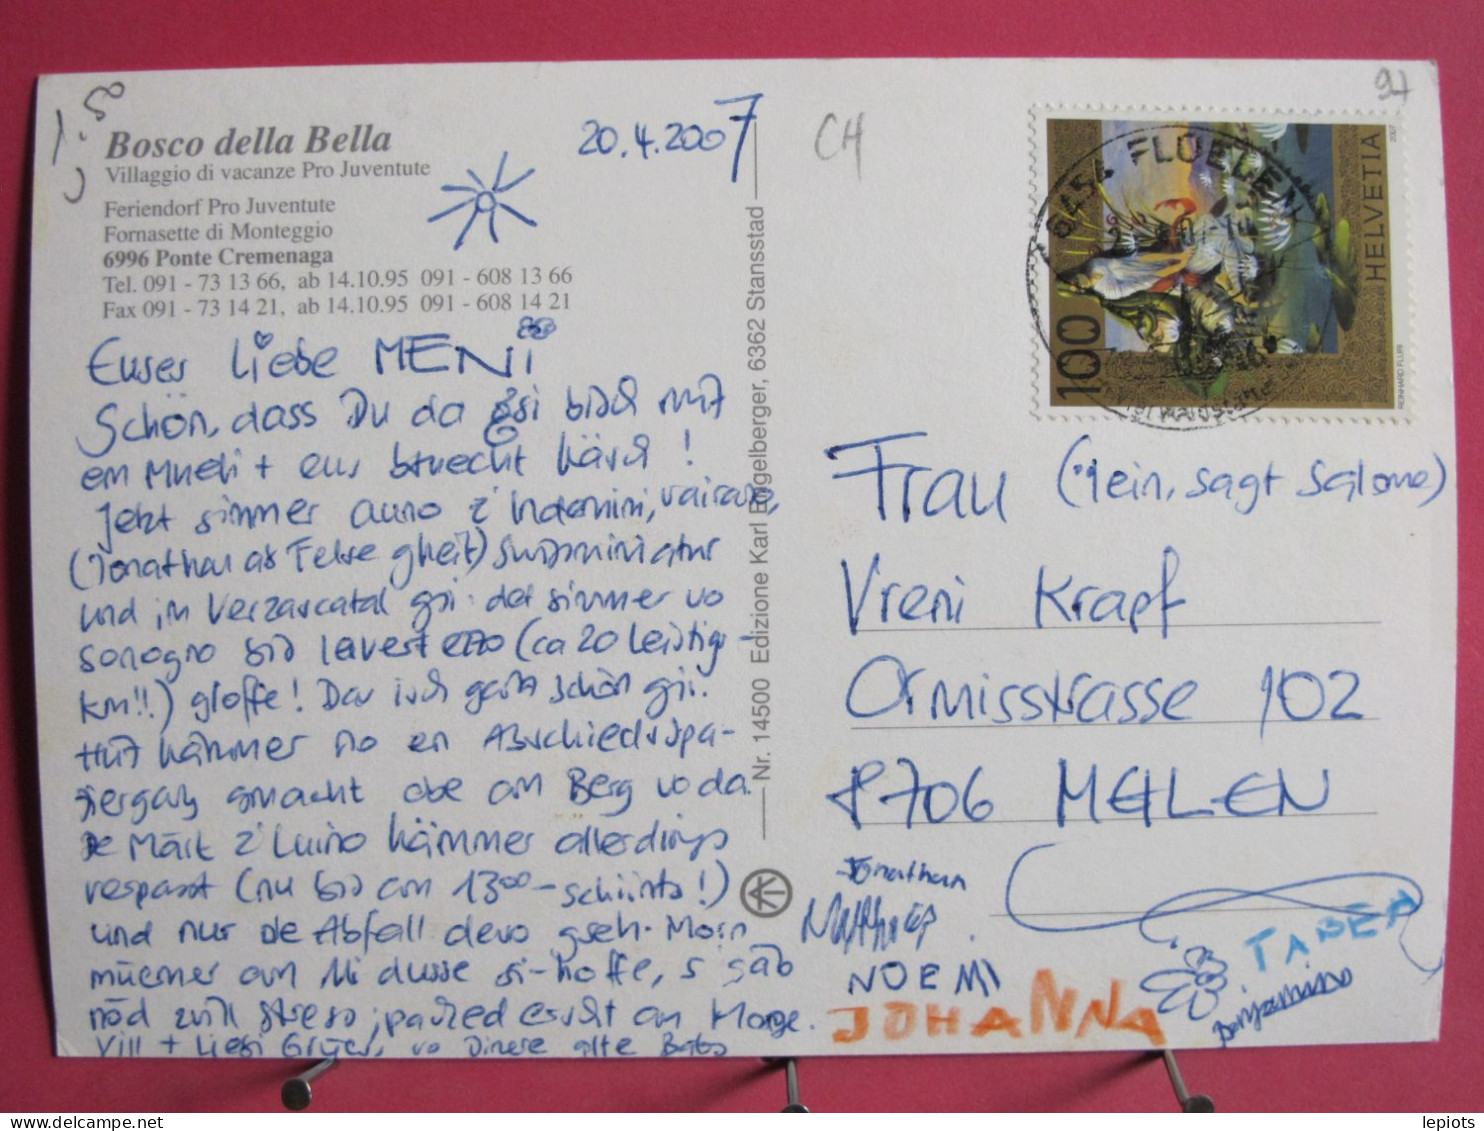 1.50
Bosco della Bella
Villaggio di vacanze Pro Juventute
Feriendorf Pro Juventute
Fornasette di Monteggio
6996 Ponte Cremenaga
Tel. 091 - 73 13 66, ab 14.10.95 091 - 608 13 66
Fax 091 - 73 14 21, ab 14.10.95 091 - 608 14 21
20.4.2007
Euses liebe MENi
Schön, dass Du da gsi bisch mit
em Mueti + eus bsuecht häsch!
Jetzt simmer auno z'Indemini, Vairano,
(Jonathan als gheit) Swissminiatur
und im Verzascatal gsi: det simmer vo
Sonogno bis Lavertezzo (ca 20 Leistigs-
km!!) gloffe! Das isch ganz schön gsi.
Hüt hämmer no en Abschiedsspa-
ziergang gmacht obe am Berg vo da.
De Märt z'Luino hämmer allerdings
verpasst (nu bis am 13⁰⁰-schiints!)
und nur de Abfall devo gseh. Morn
müemer am 11i dusse si-hoffe, s gäb
nöd zvill stress; packed erscht am Morge.
Vill + Liebi Grüess, vo Dinere
Nr. 14500 Edizione Karl Engelberger, 6362 Stansstad
CH
97
6454 FLUELEN
HELVETIA
2007
100
REINHARD FLURI
Frau (nein, sagt Salome)
Vreni Krapf
Ormisstrasse 102
8706 MEILEN
Jonathan
Matthias
NOEMI
JOHANNA
TABEA
Benjamino
lepiots